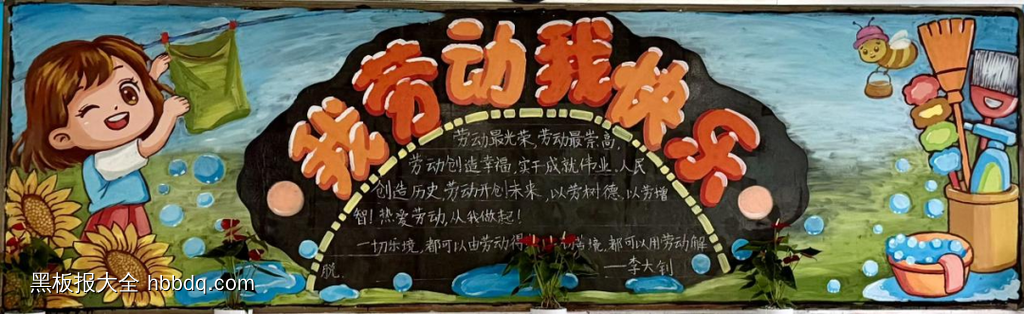 我劳动我快乐
劳动最光荣,劳动最崇高,
劳动创造幸福,实干成就伟业,人民
创造历史,劳动开创未来,以劳树德,以劳增
智!热爱劳动,从我做起!
一切乐境,都可以由劳动得 境,都可以用劳动解
脱。
——李大钊
黑板报大全 hbbdq.com